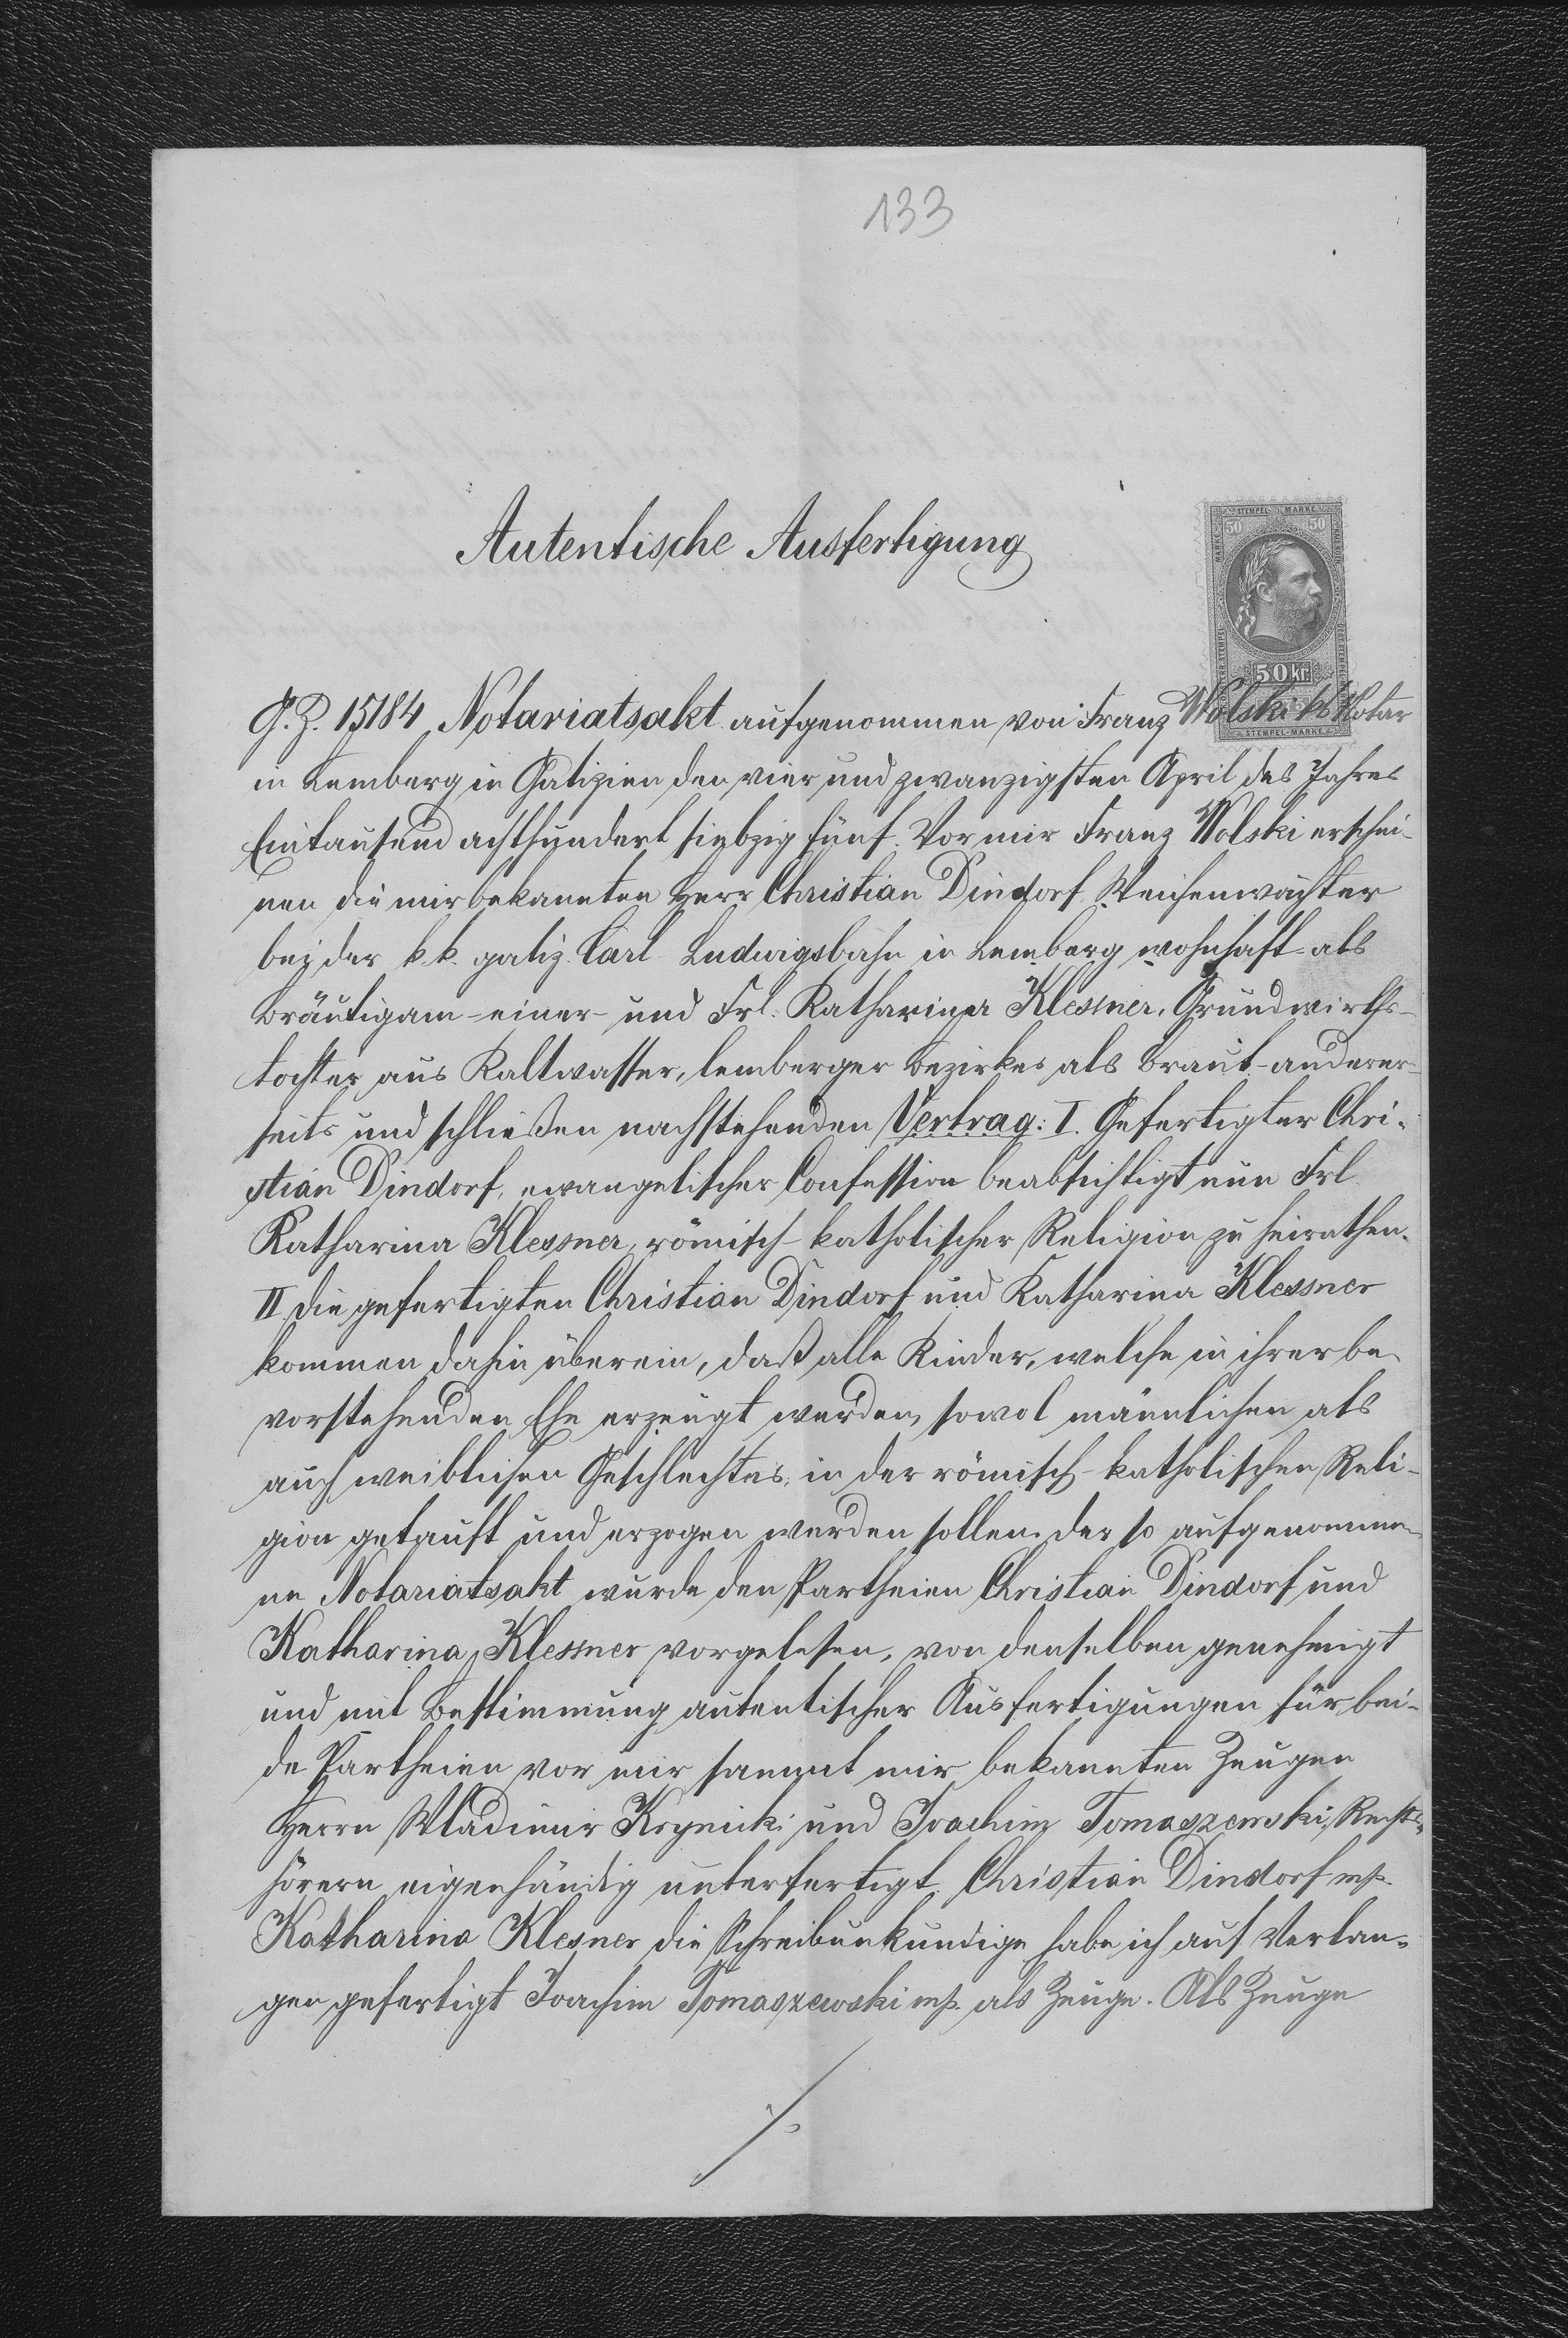 133
Autentische Ausfertigung
STEMPEL MARKE
50 50
50 kr.
STEMPEL-MARKE
G. Z. 15184 Notariatsakt aufgenommen von Franz Wolski kk Notar
in Lemberg in Galizien den vier und zwanzigsten April des Jahres
Eintausend achthundert siebzig fünf. Vor mir Franz Wolski erschei-
nen die mir bekannten Herr Christian Dindorf, Weichenwächter
bei der k.k. galiz. Carl Ludwigsbahn in Lemberg wohnhaft als
Bräutigam - einer - und Frl. Katharina Klessner, Grundwirths-
tochter aus Kaltwasser, lemberger Bezirkes als Braut - anderer-
seits und schließen nachstehenden Vertrag: I. Gefertigter Chri-
stian Dindorf, ewangelischer Confession beabsichtigt nun Frl.
Katharina Klessner, römisch-katholischer Religion zu heirathen.
II. die gefertigten Christian Dindorf und Katharina Klessner
kommen dahin überein, daß alle Kinder, welche in ihrer be-
vorstehenden Ehe erzeugt werden, sowol männlichen als
auch weiblichen Geschlechtes, in der römisch-katholischen Reli-
gion getauft und erzogen werden sollen. der so aufgenomme-
ne Notariatsakt wurde den Partheien Christian Dindorf und
Katharina Klessner vorgelesen, von denselben genehmigt
und mit Bestimmung autentischer Ausfertigungen für bei-
de Partheien vor mir sammt mir bekannten Zeugen
Herrn Wladimir Krynicki und Joachim Tomaszewski, Rechts-
hörern eigenhändig unterfertigt. Christian Dindorf mp.
Katharina Klesner die Schreibunkundige habe ich auf Verlan-
gen gefertigt Joachim Tomaszewski mp. als Zeuge. Als Zeuge
./.